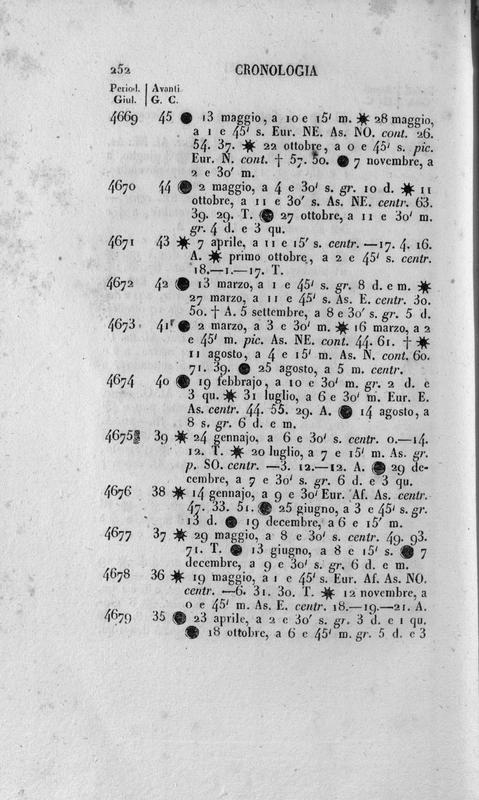 252 CRONOLOGIA
Period. | Avanti
Giul. | G. C.
4669 45 ● 13 maggio, a 10 e 15' m. ✷ 28 maggio,
a 1 e 45' s. Eur. NE. As. NO. cont. 26.
54. 37. ✷ 22 ottobre, a 0 e 45' s. pic.
Eur. N. cont. † 57. 50. ● 7 novembre, a
2 e 30' m.
4670 44 ● 2 maggio, a 4 e 30' s. gr. 10 d. ✷ 11
ottobre, a 11 e 30' s. As. NE. centr. 63.
39. 29. T. ● 27 ottobre, a 11 e 30' m.
gr. 4 d. e 3 qu.
4671 43 ✷ 7 aprile, a 11 e 15' s. centr. —17. 4. 16.
A. ✷ primo ottobre, a 2 e 45' s. centr.
18.—1.—17. T.
4672 42 ● 13 marzo, a 1 e 45' s. gr. 8 d. e m. ✷
27 marzo, a 11 e 45' s. As. E. centr. 30.
50. † A. 5 settembre, a 8 e 30' s. gr. 5 d.
4673 41 ● 2 marzo, a 3 e 30' m. ✷ 16 marzo, a 2
e 45' m. pic. As. NE. cont. 44. 61. † ✷
11 agosto, a 4 e 15' m. As. N. cont. 60.
71. 39. ● 25 agosto, a 5 m. centr.
4674 40 ● 19 febbrajo, a 10 e 30' m. gr. 2 d. e
3 qu. ✷ 31 luglio, a 6 e 30' m. Eur. E.
As. centr. 44. 55. 29. A. ● 14 agosto, a
8 s. gr. 6 d. e m.
4675 39 ✷ 24 gennajo, a 6 e 30' s. centr. 0.—14.
12. T. ✷ 20 luglio, a 7 e 15' m. As. gr.
p. SO. centr. —3. 12.—12. A. ● 29 de-
cembre, a 7 e 30' s. gr. 6 d. e 3 qu.
4676 38 ✷ 14 gennajo, a 9 e 30' Eur. Af. As. centr.
47. 33. 51. ● 25 giugno, a 3 e 45' s. gr.
13 d. ● 19 decembre, a 6 e 15' m.
4677 37 ✷ 29 maggio, a 8 e 30' s. centr. 49. 93.
71. T. ● 13 giugno, a 8 e 15' s. ● 7
decembre, a 9 e 30' s. gr. 6 d. e m.
4678 36 ✷ 19 maggio, a 1 e 45' s. Eur. Af. As. NO.
centr. —6. 31. 30. T. ✷ 12 novembre, a
0 e 45' m. As. E. centr. 18.—19.—21. A.
4679 35 ● 23 aprile, a 2 e 30' s. gr. 3 d. e 1 qu.
● 18 ottobre, a 6 e 45' m. gr. 5 d. e 3